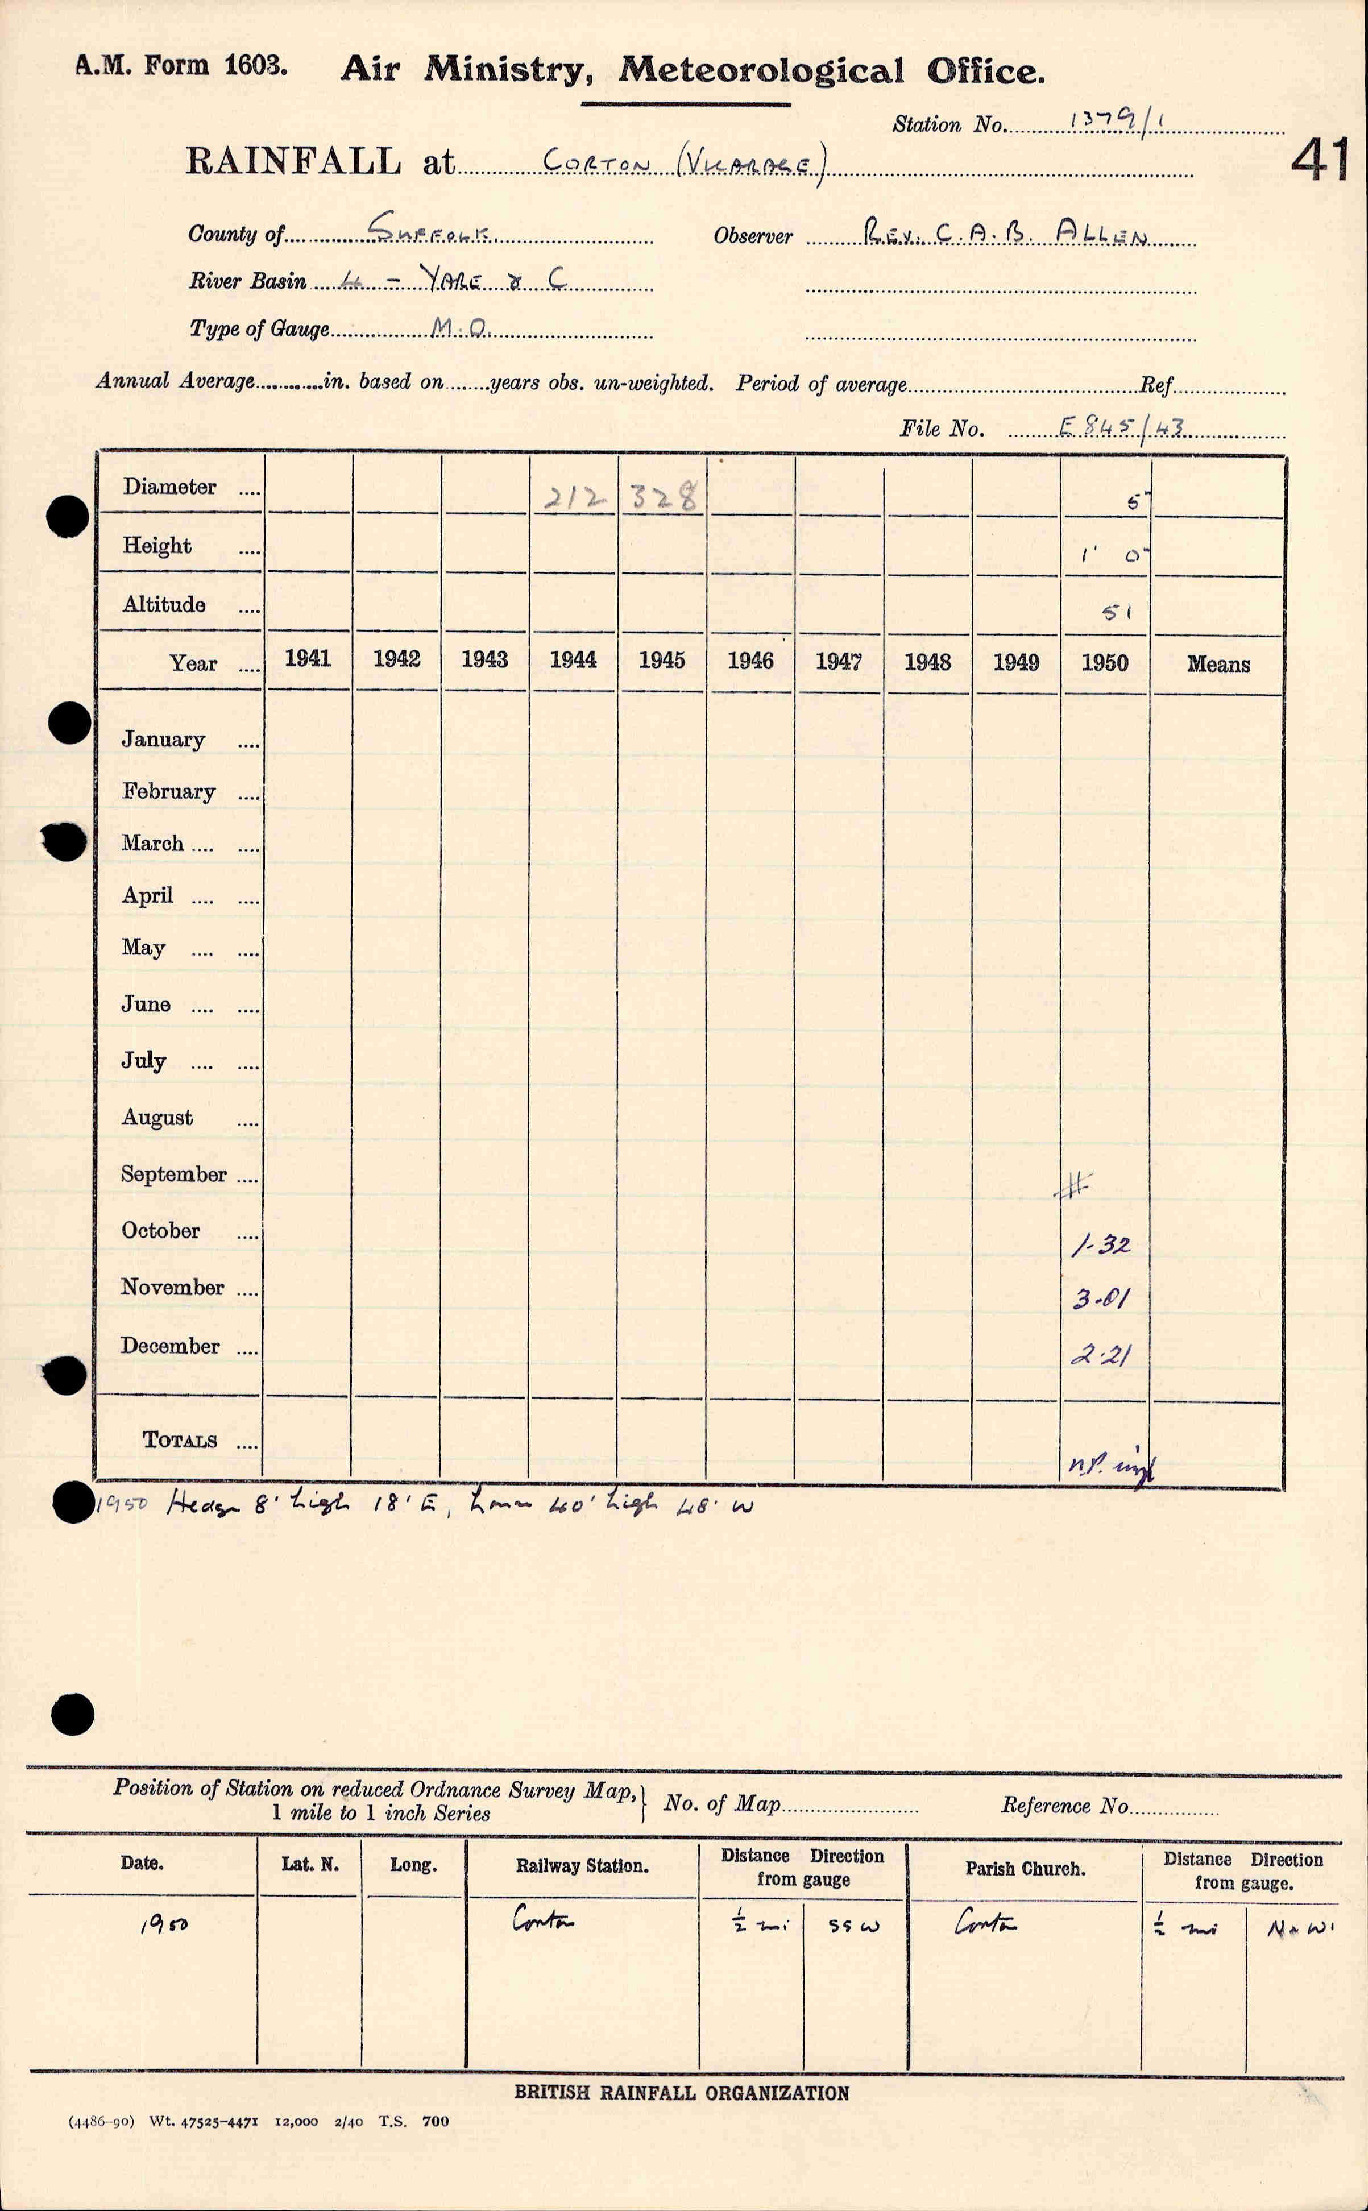 A.M. Form 1603. Air Ministry, Meteorological Office.
Station No. 1379/1
41
RAINFALL at CORTON (VICARAGE)
County of SUFFOLK Observer REV. C.A.B. ALLEN
River Basin 4 - YARE & C
Type of Gauge M.O.
Annual Average in. based on years obs. un-weighted. Period of average Ref
File No. E 845/43
Diameter .... 212 328 5"
Height .... 1' 0"
Altitude .... 51
Year .... 1941 1942 1943 1944 1945 1946 1947 1948 1949 1950 Means
January ....
February ....
March .... ....
April .... ....
May .... ....
June .... ....
July .... ....
August ....
September .... #
October .... 1.32
November .... 3.01
December .... 2.21
TOTALS .... n.p.
1950 Hedge 8' high 18' E, house 40' high 48' W
Position of Station on reduced Ordnance Survey Map, } No. of Map Reference No.
1 mile to 1 inch Series
Date. Lat. N. Long. Railway Station. Distance Direction from gauge Parish Church. Distance Direction from gauge.
1950 Corton ½ mi SSW Corton ½ mi
BRITISH RAINFALL ORGANIZATION
(4486-90) Wt. 47525-4471 12,000 2/40 T.S. 700